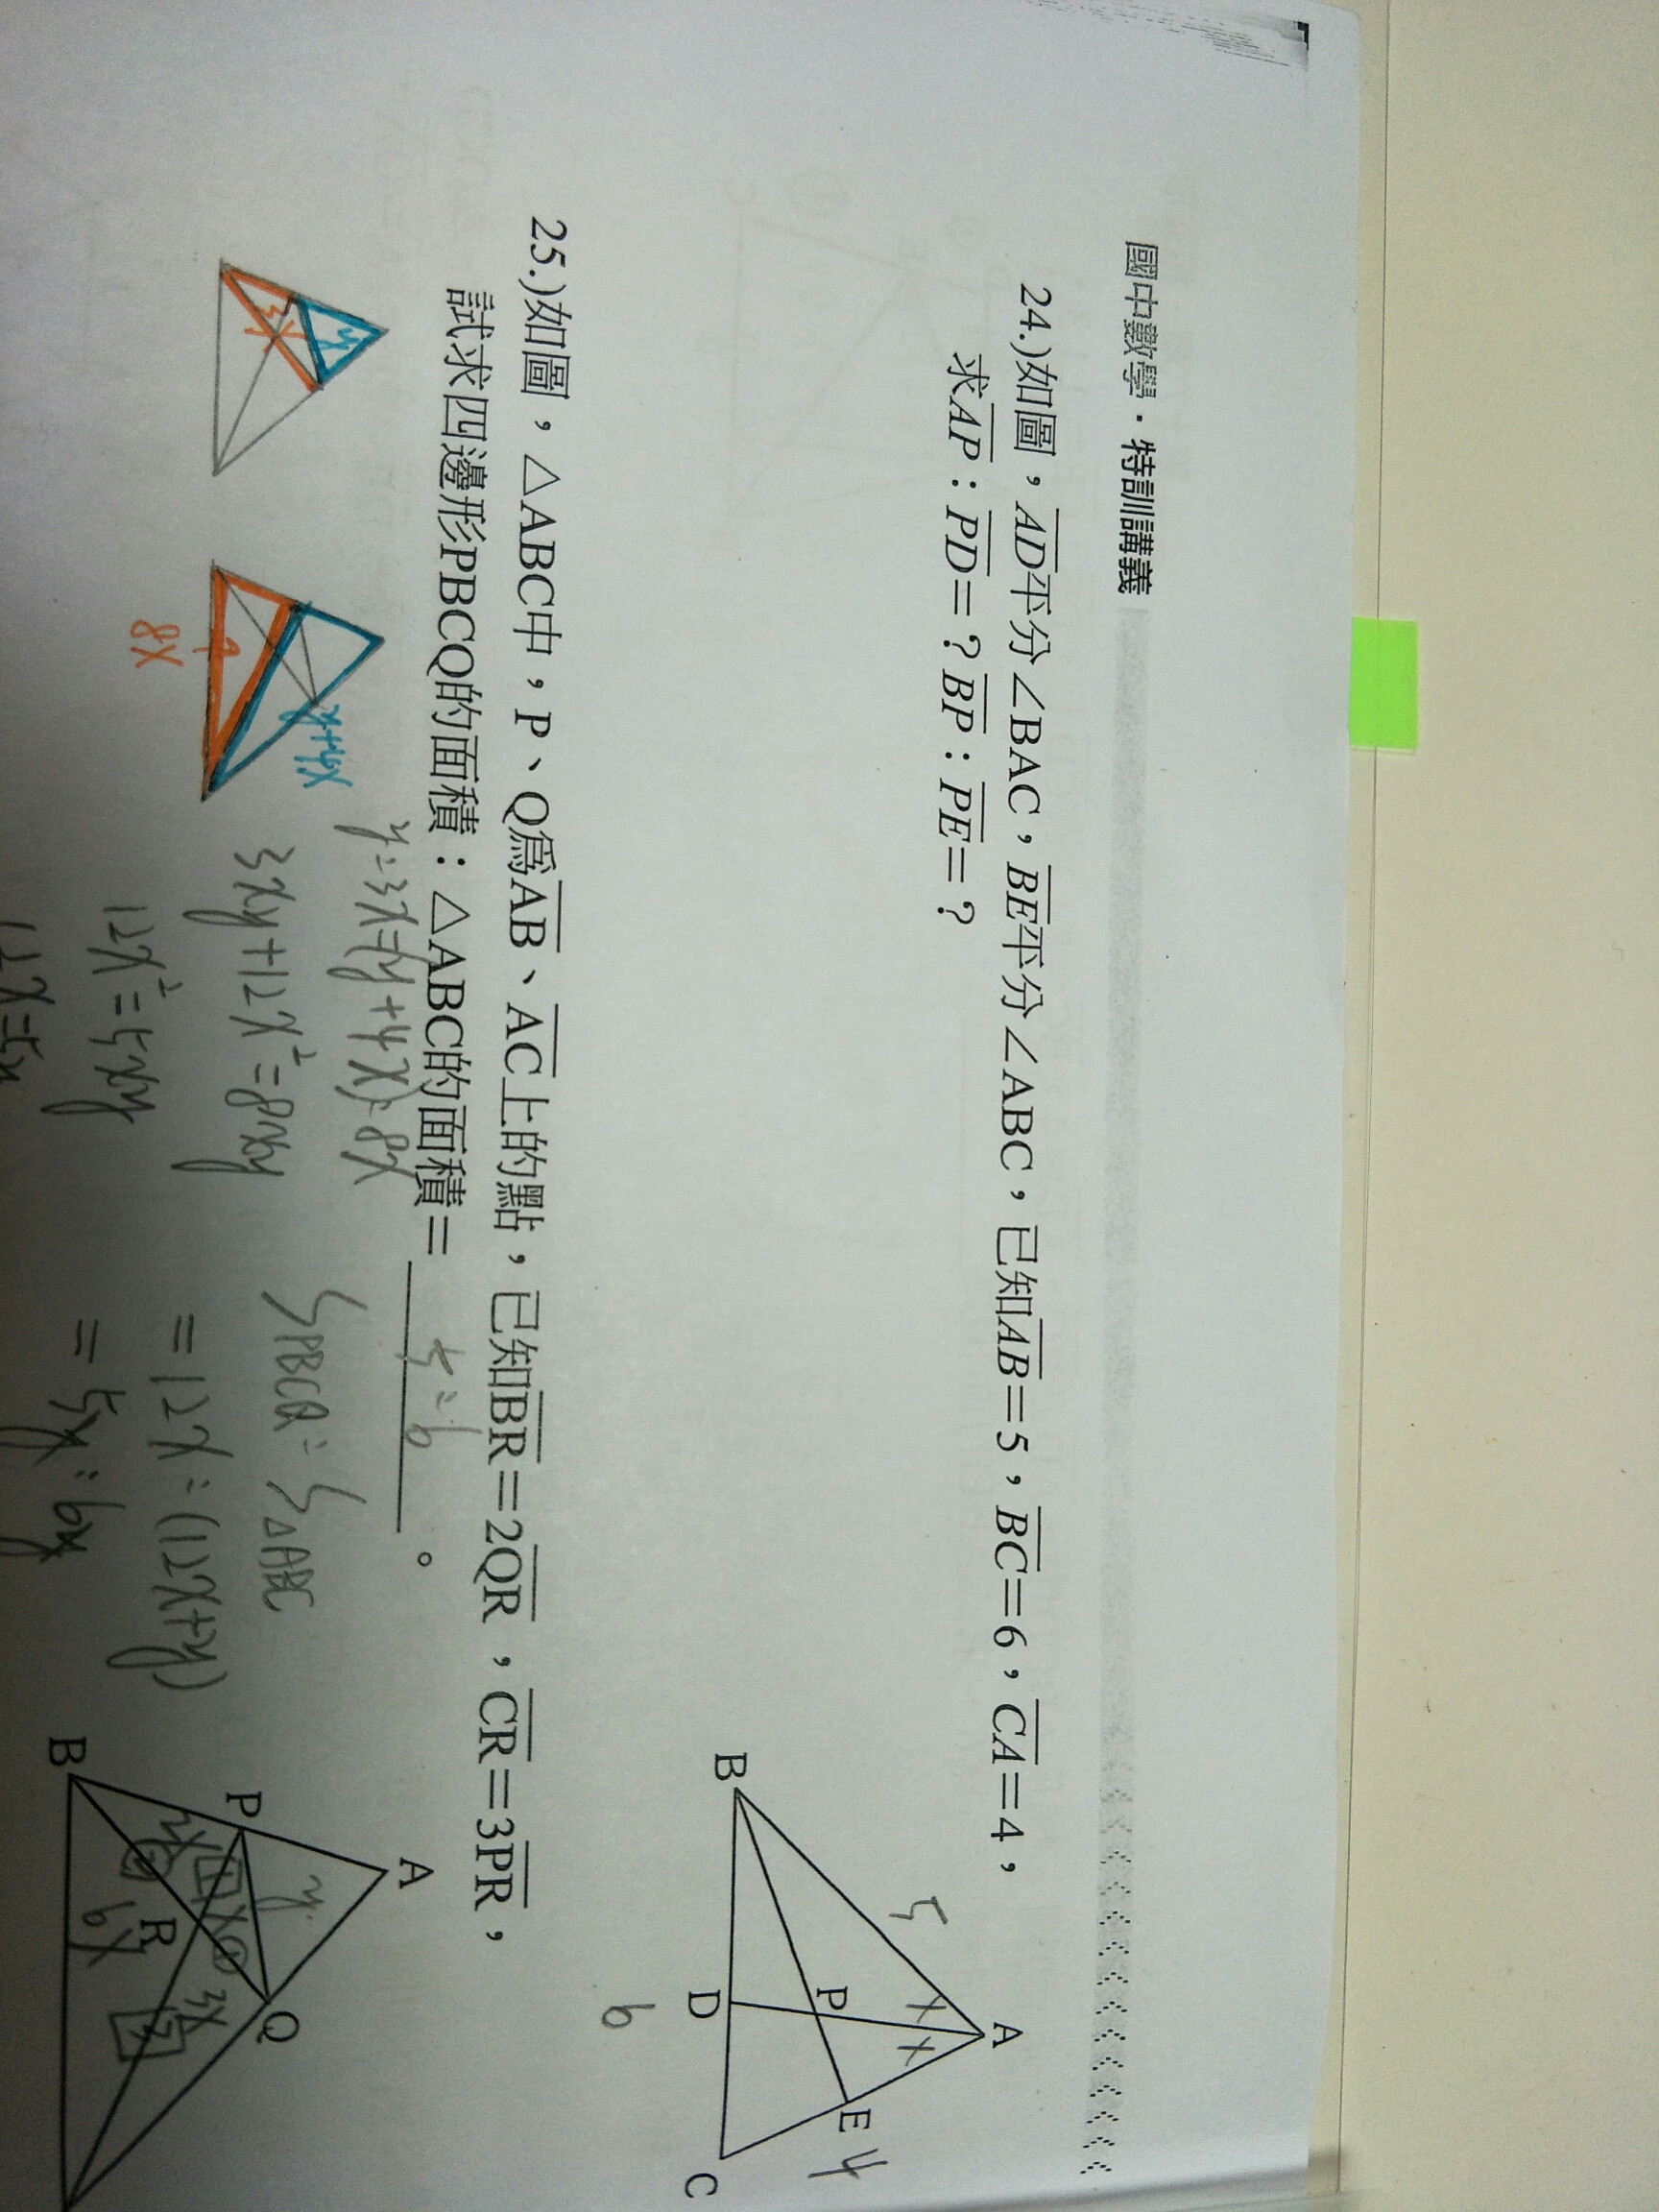 國中數學・特訓講義
24.)如圖，AD平分∠BAC，BE平分∠ABC，已知AB=5，BC=6，CA=4，
求AP：PD=？BP：PE=？
B
A
C
D
E
P
5
6
4
x
x
25.)如圖，△ABC中，P、Q為AB、AC上的點，已知BR=2QR，CR=3PR，
試求四邊形PBCQ的面積：△ABC的面積=5:6。
y
3x
y+4x
8x
y:3x=(y+4x):8x
3xy+12x²=8xy
12x²=5xy
12x=5y
SPBCQ:S△ABC
=12x:(12x+y)
=5y:6y
A
B
P
Q
R
y
2x
1
x
1
3x
2
6x
3